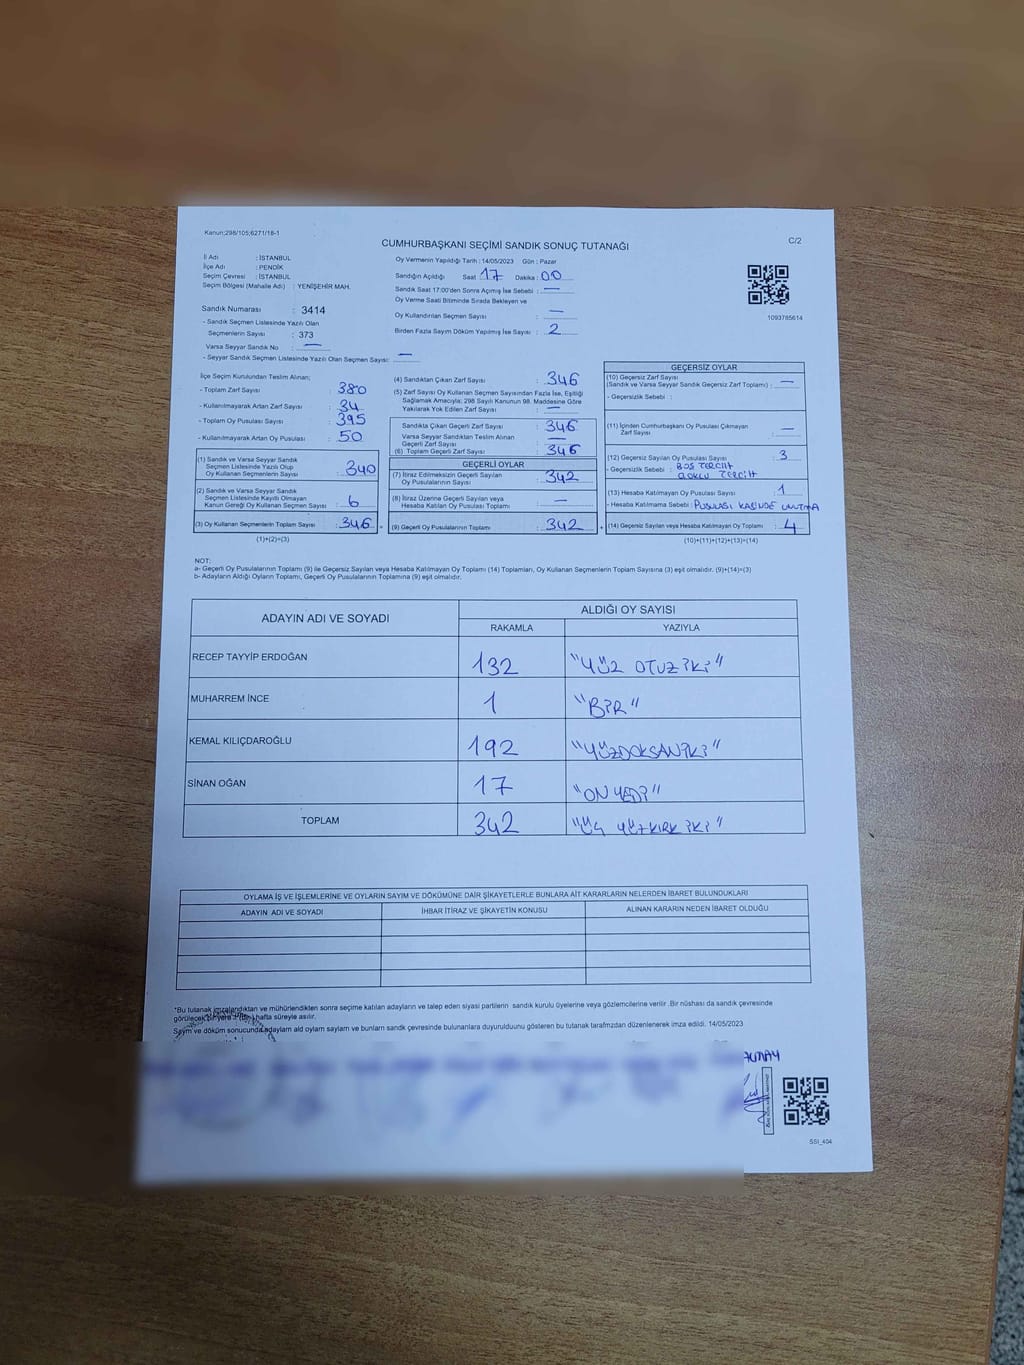 Kanun;298/105;6271/18-1
CUMHURBAŞKANI SEÇİMİ SANDIK SONUÇ TUTANAĞI
C/2
İl Adı : İSTANBUL
İlçe Adı : PENDİK
Seçim Çevresi : İSTANBUL
Seçim Bölgesi (Mahalle Adı) : YENİŞEHİR MAH.
Sandık Numarası : 3414
- Sandık Seçmen Listesinde Yazılı Olan
Seçmenlerin Sayısı : 373
Varsa Seyyar Sandık No : —
- Seyyar Sandık Seçmen Listesinde Yazılı Olan Seçmen Sayısı: —
Oy Vermenin Yapıldığı Tarih : 14/05/2023 Gün : Pazar
Sandığın Açıldığı Saat 17 Dakika : 00
Sandık Saat 17:00'den Sonra Açımış İse Sebebi : —
Oy Verme Saati Bitiminde Sırada Bekleyen ve
Oy Kullandırılan Seçmen Sayısı : —
Birden Fazla Sayım Döküm Yapılmış İse Sayısı : 2
1093785614
İlçe Seçim Kurulundan Teslim Alınan;
- Toplam Zarf Sayısı : 380
- Kullanılmayarak Artan Zarf Sayısı : 34
- Toplam Oy Pusulası Sayısı : 395
- Kullanılmayarak Artan Oy Pusulası : 50
(1) Sandık ve Varsa Seyyar Sandık
Seçmen Listesinde Yazılı Olup
Oy Kullanan Seçmenlerin Sayısı : 340
(2) Sandık ve Varsa Seyyar Sandık
Seçmen Listesinde Kayıtlı Olmayan
Kanun Gereği Oy Kullanan Seçmen Sayısı : 6
(3) Oy Kullanan Seçmenlerin Toplam Sayısı : 346 =
(1)+(2)=(3)
(4) Sandıktan Çıkan Zarf Sayısı : 346
(5) Zarf Sayısı Oy Kullanan Seçmen Sayısından Fazla İse, Eşitliği
Sağlamak Amacıyla; 298 Sayılı Kanunun 98. Maddesine Göre
Yakılarak Yok Edilen Zarf Sayısı : —
Sandıkta Çıkan Geçerli Zarf Sayısı : 346
Varsa Seyyar Sandıktan Teslim Alınan
Geçerli Zarf Sayısı : —
(6) Toplam Geçerli Zarf Sayısı : 346
GEÇERLİ OYLAR
(7) İtiraz Edilmeksizin Geçerli Sayılan
Oy Pusulalarının Sayısı : 342
(8) İtiraz Üzerine Geçerli Sayılan veya
Hesaba Katılan Oy Pusulası Toplamı : —
(9) Geçerli Oy Pusulalarının Toplamı : 342 +
GEÇERSİZ OYLAR
(10) Geçersiz Zarf Sayısı
(Sandık ve Varsa Seyyar Sandık Geçersiz Zarf Toplamı) : —
- Geçersizlik Sebebi :
(11) İçinden Cumhurbaşkanı Oy Pusulası Çıkmayan
Zarf Sayısı : —
(12) Geçersiz Sayılan Oy Pusulası Sayısı : 3
- Geçersizlik Sebebi : BOŞ TERCİH
ÇOKLU TERCİH
(13) Hesaba Katılmayan Oy Pusulası Sayısı : 1
- Hesaba Katılmama Sebebi : PUSULASI UNUTMA
(14) Geçersiz Sayılan veya Hesaba Katılmayan Oy Toplamı : 4
(10)+(11)+(12)+(13)=(14)
NOT:
a- Geçerli Oy Pusulalarının Toplamı (9) ile Geçersiz Sayılan veya Hesaba Katılmayan Oy Toplamı (14) Toplamları, Oy Kullanan Seçmenlerin Toplam Sayısına (3) eşit olmalıdır. (9)+(14)=(3)
b- Adayların Aldığı Oyların Toplamı, Geçerli Oy Pusulalarının Toplamına (9) eşit olmalıdır.
ADAYIN ADI VE SOYADI
ALDIĞI OY SAYISI
RAKAMLA YAZIYLA
RECEP TAYYİP ERDOĞAN 132 "YÜZ OTUZ İKİ"
MUHARREM İNCE 1 "BİR"
KEMAL KILIÇDAROĞLU 192 "YÜZDOKSANİKİ"
SİNAN OĞAN 17 "ON YEDİ"
TOPLAM 342 "ÜÇ YÜZKIRK İKİ"
OYLAMA İŞ VE İŞLEMLERİNE VE OYLARIN SAYIM VE DÖKÜMÜNE DAİR ŞİKAYETLERLE BUNLARA AİT KARARLARIN NELERDEN İBARET BULUNDUKLARI
ADAYIN ADI VE SOYADI İHBAR İTİRAZ VE ŞİKAYETİN KONUSU ALINAN KARARIN NEDEN İBARET OLDUĞU
*Bu tutanak imzalandıktan ve mühürlendikten sonra seçime katılan adayların ve talep eden siyasi partilerin sandık kurulu üyelerine veya gözlemcilerine verilir .Bir nüshası da sandık çevresinde
görülecek bir yere hafta süreyle asılır.
Sayım ve döküm sonucunda adayların ald oylam sayların ve bunların sandık çevresinde bulunanlara duyurulduunu gösteren bu tutanak tarafımzdan düzenlenerek imza edildi. 14/05/2023
SSI_404